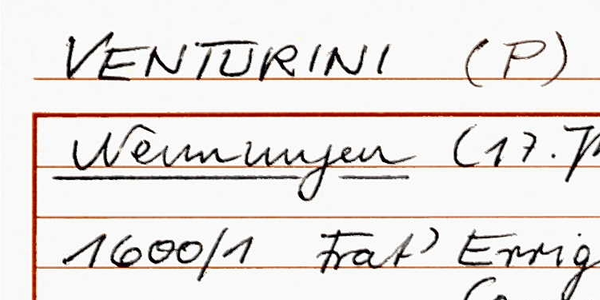 VENTURINI (P)
Nennungen (17.
1600/1 Frat' Errig